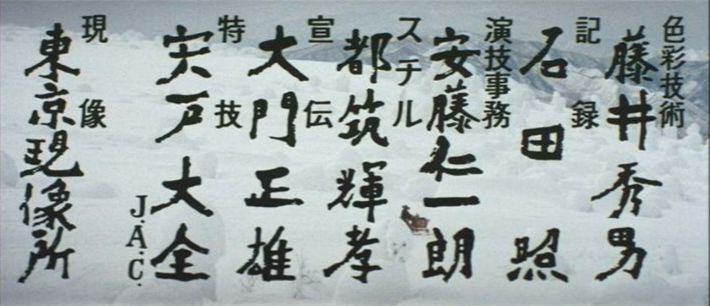 色彩技術
藤井秀男
記録
石田照
演技事務
安藤仁一朗
スチル
都筑輝孝
宣伝
大門正雄
特技
宍戸大全
J.A.C.
現像
東京現像所